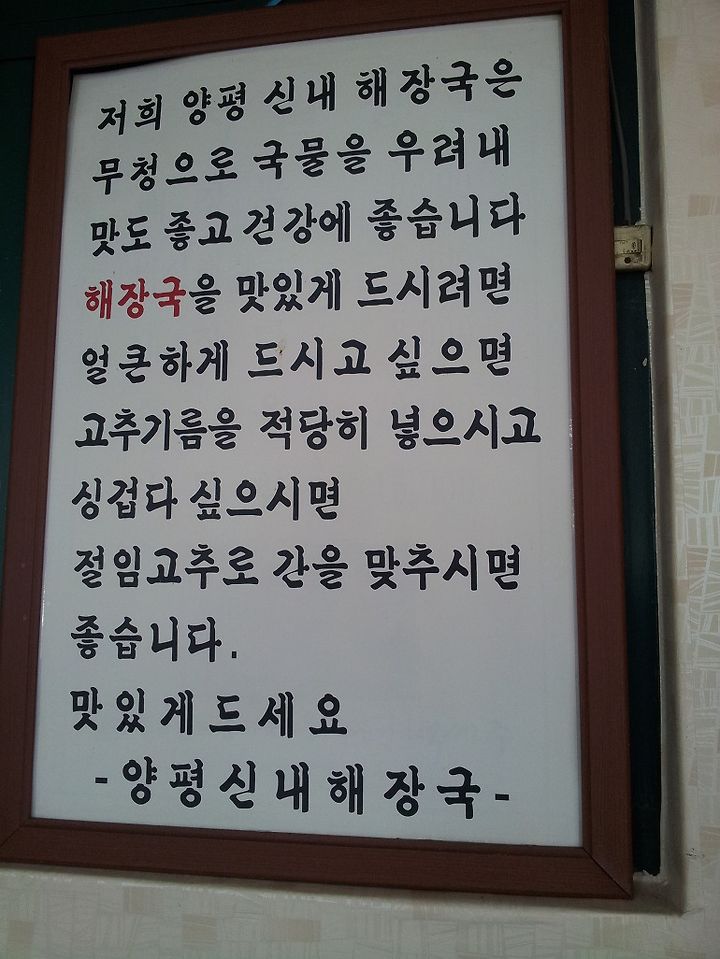 저희 양평 신내 해장국은
무청으로 국물을 우려내
맛도 좋고 건강에 좋습니다
해장국을 맛있게 드시려면
얼큰하게 드시고 싶으면
고추기름을 적당히 넣으시고
싱겁다 싶으시면
절임고추로 간을 맞추시면
좋습니다.
맛있게드세요
-양평신내해장국-